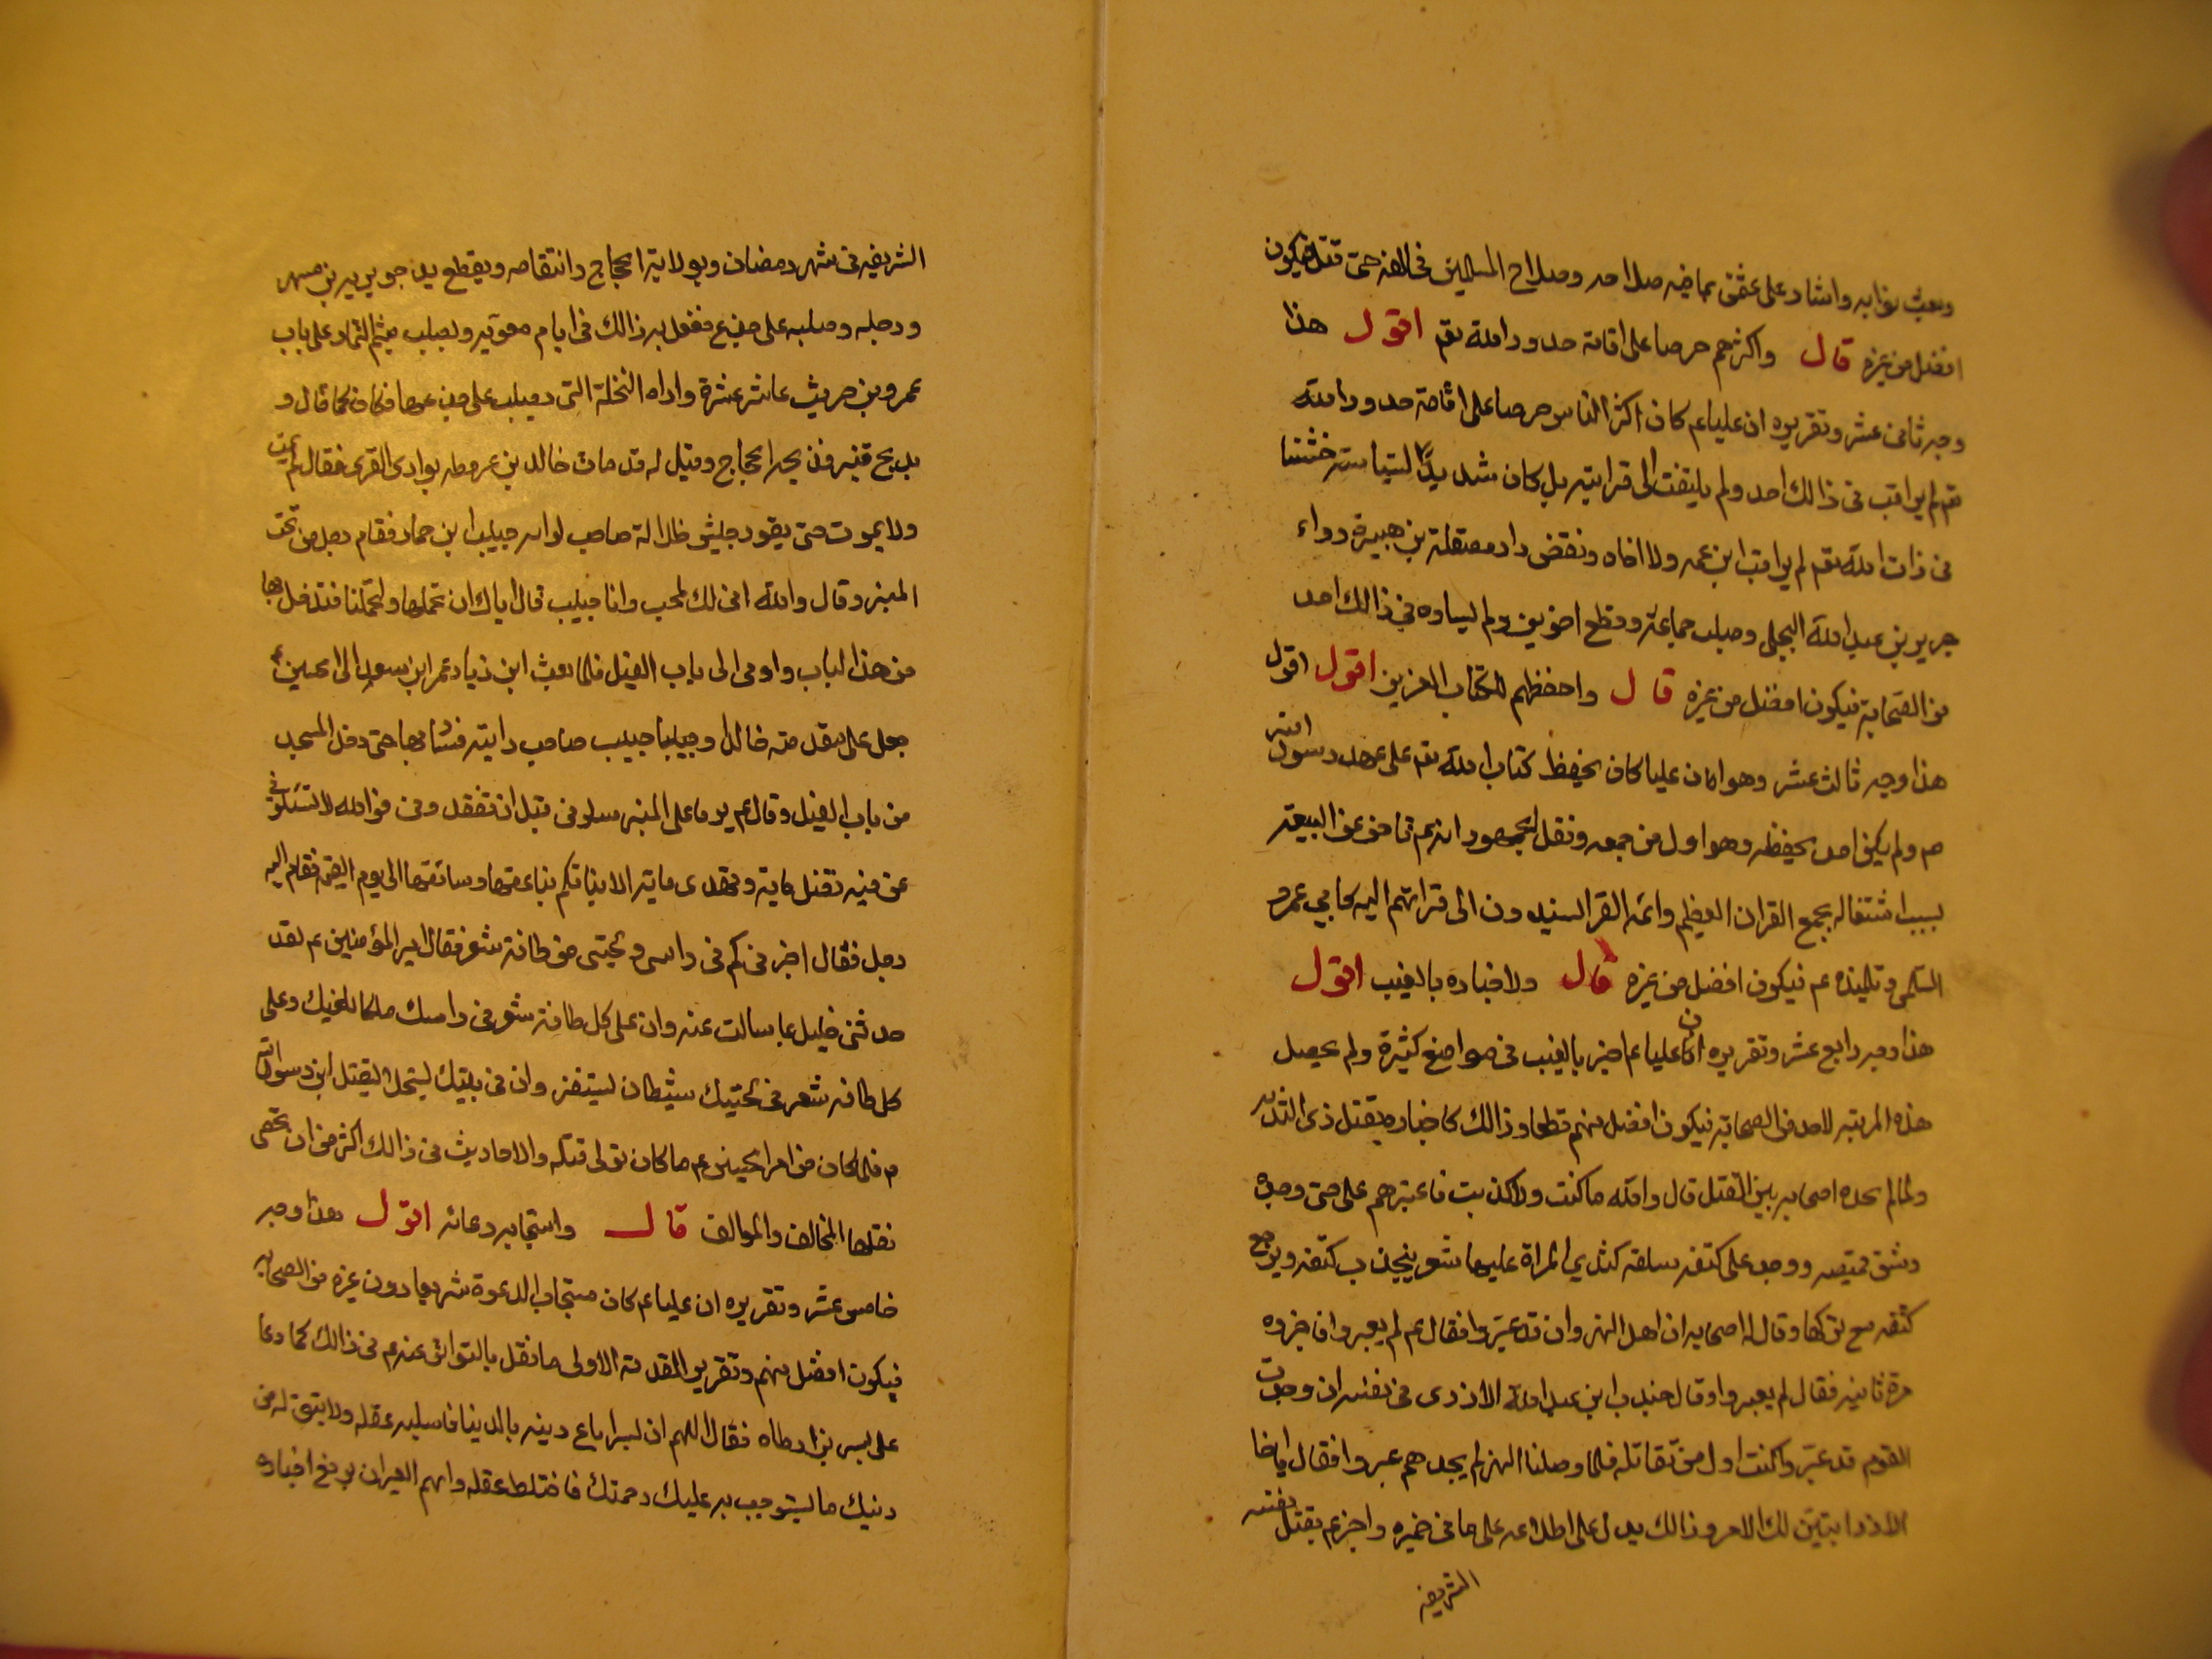 وبعث نوابه واشار على عثمن بما فيه صلاحه وصلاح المسلمين فخالفه حتى قتل فيكون
افضل من غيره قال واكثرهم حرصا على اقامة حدود الله تعم اقول هذا
وجه ثانى عشر وتقريره ان عليا عم كان اكثر الناس حرصا على اقامة حدود الله
تعم لم يراقب فى ذالك احد ولم يلتفت الى قرابته بل كان شديدًا لسياسته خشنا
فى ذات الله تعم لم يراقب ابن عمه ولا اخاه ونقض دار مصقلة بن هبيرة ودار
جرير بن عبد الله البجلى وصلب جماعة وقطع اخرين ولم يساوه فى ذالك احد
من الصحابة فيكون افضل من غيره قال واحفظهم للكتاب العزيز اقول اقول
هذا وجه ثالث عشر وهو ان عليا كان يحفظ كتاب الله تعم على عهد رسول الله
ص ولم يكن احد يحفظه وهو اول من جمعه ونقل الجمهور انه عم تاخر عن البيعة
بسبب اشتغاله بجمع القران العظيم وائمة القرا يسندون الى قراتهم اليه كابي عمرو
السلمى وتلميذه عم فيكون افضل من غيره قال ولاخباره بالغيب اقول
هذا وجه رابع عشر وتقريره ان عليا عم اخبر بالغيب فى مواضع كثيرة ولم يحصل
هذه المرتبه لاحد فى الصحابة فيكون افضل منهم قطعا وذالك كاخباره بقتل ذى الثديه
ولما لم يجده اصحابه بين القتل قال والله ما كذبت ولا كذبت فاعتبرهم على حتى وجده
وشق قميصه ووجد على كتفه سلعه كثدي المراة عليها شعر ينجذب كتفه ويرجع
كتفه مع تركها وقال له اصحابه ان اهل النهروان قد عبروا فقال عم لم يعبروا فاخبروه
مرة ثانيه فقال لم يعبروا وقال جندب ابن عبد الله الازدى فى نفسه ان وجدت
القوم قد عبروا كنت اول من تقاتله فلما وصلنا النهر لم يجدهم عبروا فقال يا اخا
الازد اتبين لك الامر وذالك يدل على اطلاعه على ما فى ضميره واخبر عم بقتل نفسه
الشريفه
الشريفه فى شهر رمضان وبولاية الحجاج وانتقامه وبقطع يد جويريه بن مسهر
ورجله وصلبه على جذع ففعل به ذالك فى ايام معوية وبصلب ميثم التمار على باب
عمرو بن حريث عاشر عشرة واراه النخلة التى يصلب على جذعها فكان كما قال و
بذبح قنبر فذبحه الحجاج وقيل له قد مات خالد بن عرفطه بوادى القرى فقال لم يمت
ولا يموت حتى يقود جيش ضلالة صاحب لوائه حبيب ابن حماد فقام رجل من تحت
المنبر وقال والله انى لك لمحب وانا حبيب قال اياك ان تحملها ولتحملنها فتدخل بها
من هذا الباب واومى الى باب الفيل فلما بعث ابن زياد عمر ابن سعد الى الحسين عم
جعل على مقدمته خالدا وحبيبا صاحب رايته فسار بها حتى دخل المسجد
من باب الفيل وقال عم يوما على المنبر سلونى قبل ان تفقدونى فوالله لا تسئلونى
عن فيه تضل ماية وتهدى ماية الا نباتكم بناعقها وسائقها الى يوم القيمة فقام اليه
رجل فقال اخبرنى كم فى راسى ولحيتى من طاقة شعر فقال امير المؤمنين عم لقد
حدثنى خليل بما سالت عنه وان على كل طاقة شعر فى راسك ملكا يلعنك وعلى
كل طاقه شعر فى لحيتك شيطان يستفز وان فى بيتك لسخلا يقتل ابن رسول الله
ص فلما كان من امر الحسين عم ما كان تولى قتله والاحاديث فى ذالك اكثر من ان تحصى
نقلها المخالف والموالف قال واستجابه دعائه اقول هذا وجه
خامس عشر وتقريره ان عليا عم كان مستجاب الدعوة شريعا دون غيره من الصحابه
فيكون افضل منهم وتقرير المقدمة الاولى ما نقل بالتواتر عنه عم فى ذالك كما دعا
على بسر بن ارطاه فقال اللهم ان بسرا باع دينه بالدنيا فاسلبه عقله ولا تبق له من
دينك ما يستوجب به عليك رحمتك فاختلط عقله واتهم العيزان برفع اخباره